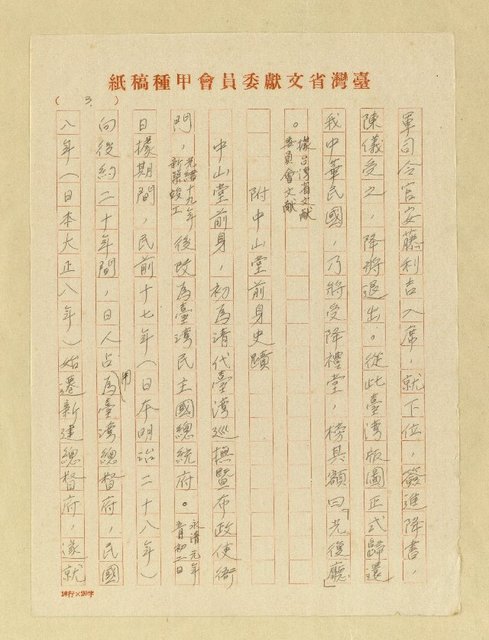 臺灣省文獻委員會甲種稿紙
( 3. )
軍司令官安藤利吉入席,就下位,簽進降書,
陳儀受之,降將退出。從此臺灣版圖正式歸還
我中華民國,乃將受降禮堂,榜其額曰「光復廳」
。據台灣省文獻委員會文獻
附中山堂前身史蹟
中山堂前身,初為清代臺灣巡撫暨布政使衙
門,光緒十九年新築竣工後改為臺灣民主國總統府。永清元年五月初二日
日據期間,民前十七年(日本明治二十八年)
向後約二十年間,日人占用為臺灣總督府,民國
八年(日本大正八年)始遷新建總督府,遂就